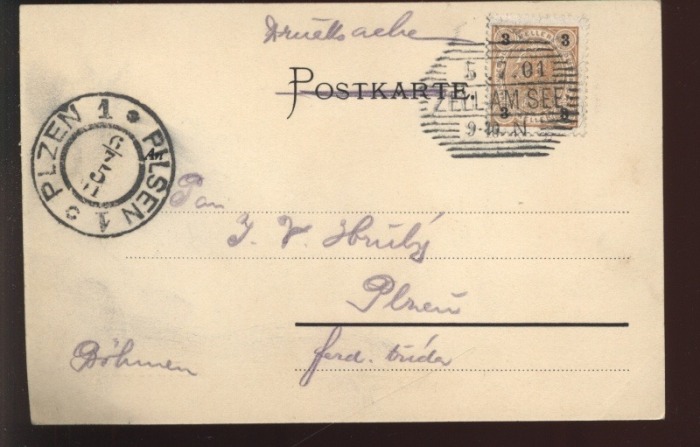 Drucksache
POSTKARTE.
3 HELLER 3
3 3
5 7.01
ZELL AM SEE
9-10.N
PLZEN 1 * PILSEN 1
6/7 01
An
Pan
J. V. Hrubý
Plzeň
ferd. třída
Böhmen